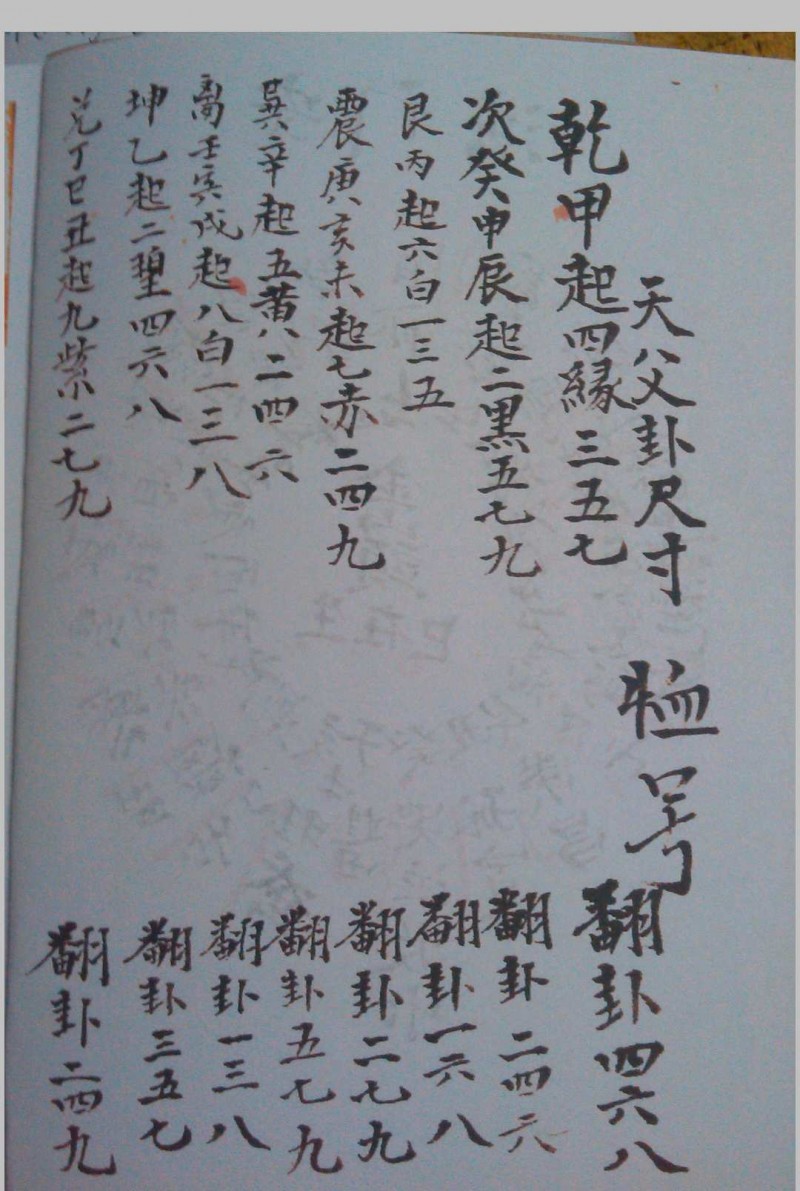 天父卦尺寸
号
乾甲起四緣三五七 翻卦四六八
次癸申辰起二黑五七九 翻卦二四六
艮丙起六白一三五 翻卦一六八
震庚亥未起七赤二四九 翻卦二七九
巽辛起五黄八二四六 翻卦五七九
离壬寅戌起八白一三八 翻卦一三八
坤乙起二四六八 翻卦三五七
兑丁巳丑起九紫二七九 翻卦二四九